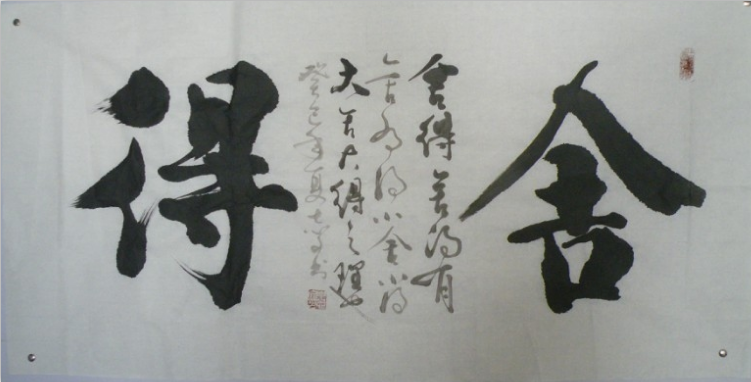 舍
舍得舍得有
舍有得小舍小得
大舍大得之理也
癸巳年夏
得